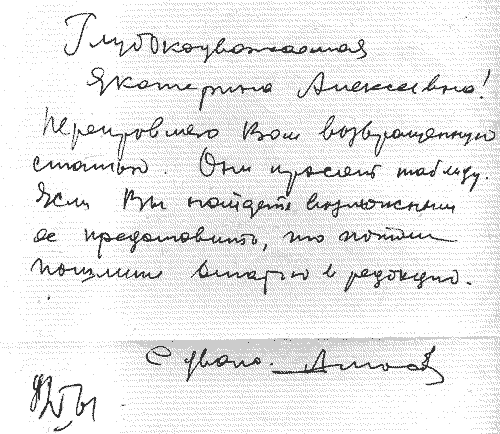 Глубокоуважаемая
Екатерина Алексеевна!
Переправляю Вам возвращенную
статью. Они просят таблицу.
Если Вы найдете возможным
ее представить, то потом
пошлите статью в редакцию.
С уваж.